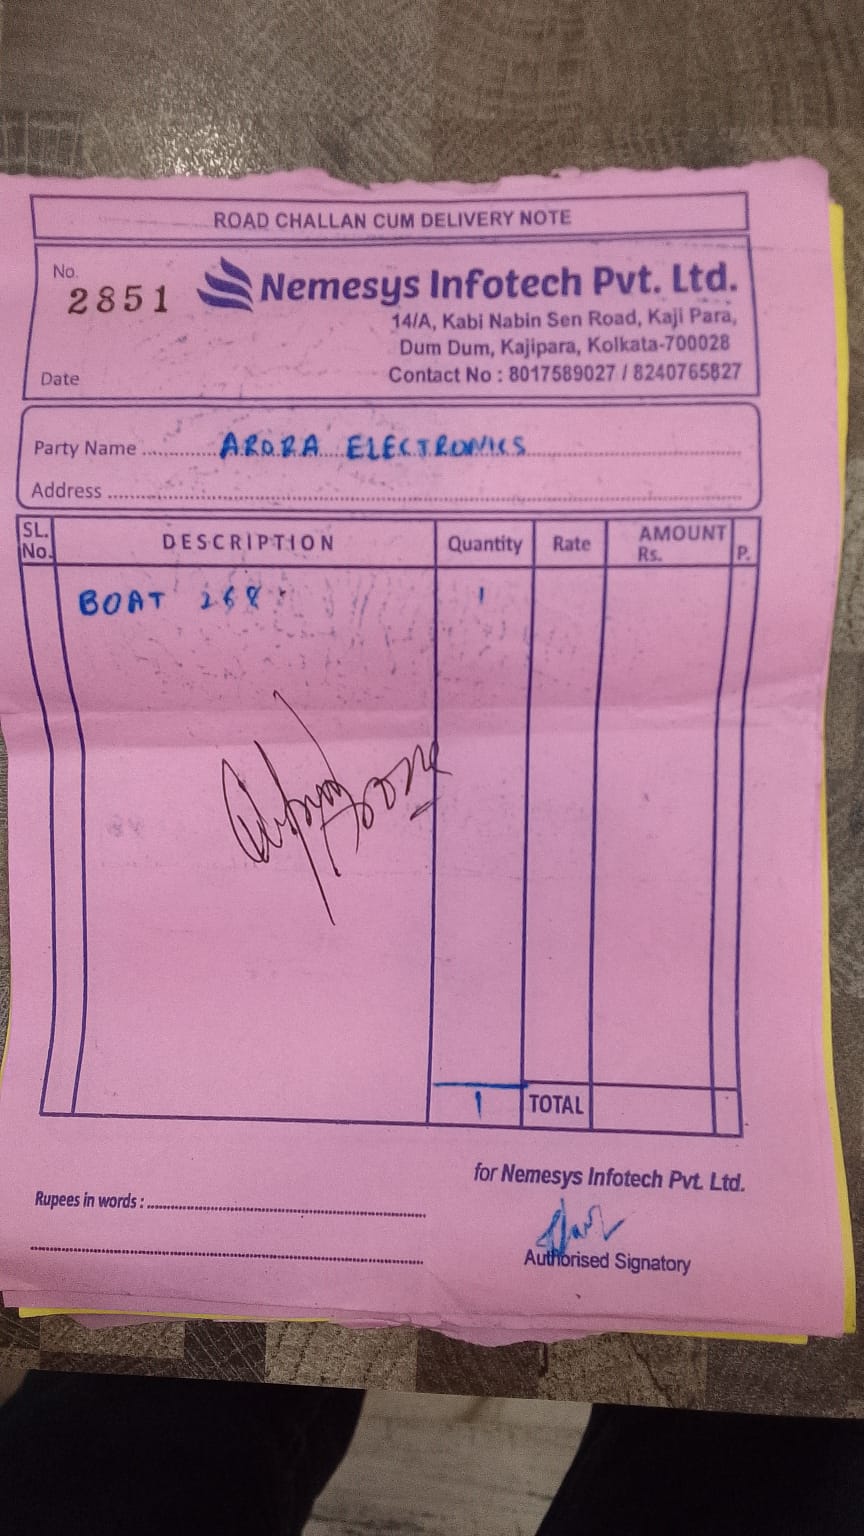 ROAD CHALLAN CUM DELIVERY NOTE
No.
2851
Nemesys Infotech Pvt. Ltd.
14/A, Kabi Nabin Sen Road, Kaji Para,
Dum Dum, Kajipara, Kolkata-700028
Date
Contact No : 8017589027 / 8240765827
Party Name ARORA ELECTRONICS
Address
SL. No. DESCRIPTION Quantity Rate AMOUNT Rs. P.
BOAT 268 1
1 TOTAL
for Nemesys Infotech Pvt. Ltd.
Rupees in words :
Authorised Signatory